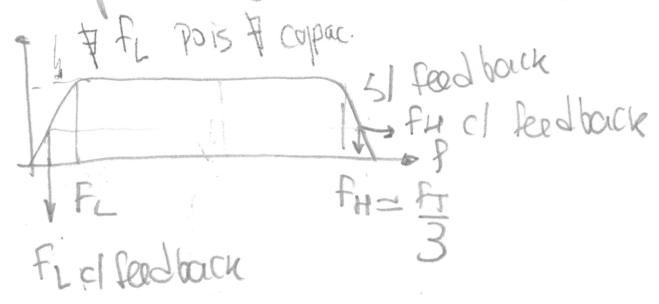 ∄ f_L pois ∄ capac.
s/ feedback
f_H c/ feedback
f
F_L
f_H ≃ f_T/3
F_L c/ feedback